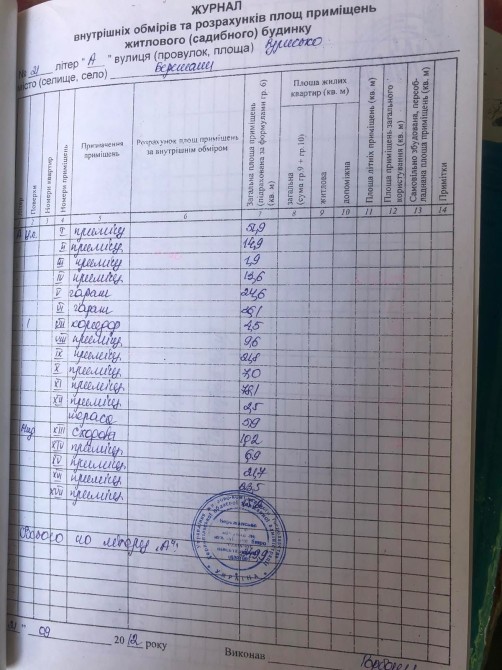 ЖУРНАЛ
внутрішніх обмірів та розрахунків площ приміщень
житлового (садибного) будинку
№ 21 літер "А" вулиця (провулок, площа)
місто (селище, село)
Поверхи
Номери квартир
Номери приміщень
Призначення приміщень
Розрахунок площ приміщень за внутрішнім обміром
Загальна площа приміщень (підрахована за формулами гр. 6) (кв. м)
Площа жилих квартир (кв. м)
загальна (сума гр.9 + гр.10)
житлова
допоміжна
Площа літніх приміщень (кв. м)
Площа приміщень загального користування (кв. м)
Самовільно збудована, переобладнана площа приміщень (кв. м)
Примітки
2 3 4 5 6 7 8 9 10 11 12 13 14
А І приміщ
ІІ приміщ. 14,9
ІІІ приміщ 1,9
IV приміщ. 13,6
V гараж 24,6
VI гараж
1 VII коридор 4,5
VIII приміщ. 9,6
IX приміщ.
X приміщ. 7,0
XI приміщ.
XII приміщ. 2,5
тераса 5,9
XIII сходова 10,2
XIV приміщ.
XV приміщ. 6,9
XVI приміщ. 21,7
XVII приміщ. 23,5
Всього по літері "А":
УКРАЇНА
"21" 09 2012 року
Виконав